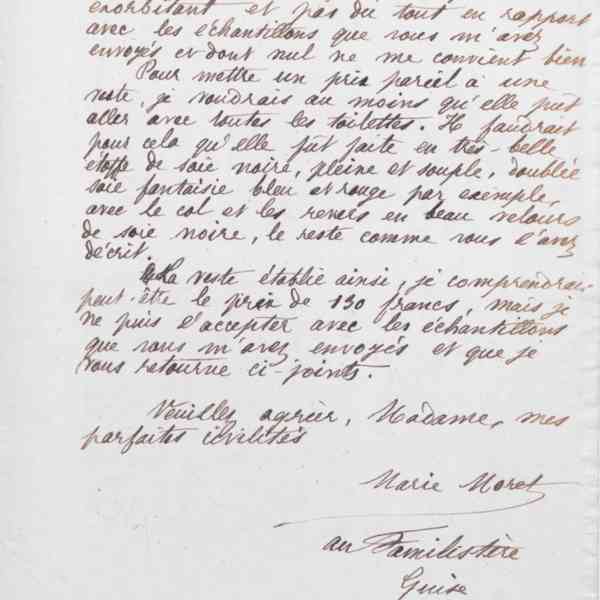 exorbitant et pas du tout en rapport
avec les échantillons que vous m'avez
envoyés et dont nul ne me convient bien
Pour mettre un prix pareil à une
veste, je voudrais au moins qu'elle pût
aller avec toutes les toilettes. Il faudrait
pour cela qu'elle fût faite en très-belle
étoffe de soie noire, pleine et souple, doublée
soie fantaisie bleu et rouge par exemple,
avec le col et les revers en beau velours
de soie noire, le reste comme vous l'avez
décrit.
La veste établie ainsi, je comprendrais
peut-être le prix de 130 francs, mais je
ne puis l'accepter avec les échantillons
que vous m'avez envoyés et que je
vous retourne ci-joints.
Veuillez agréer, Madame, mes
parfaites civilités
Marie Moret
au Familistère
Guise